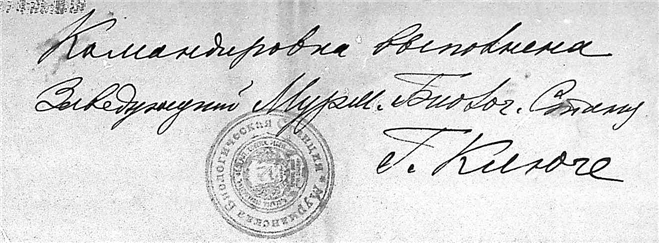 Командировка выполнена
Заведующий Мурм. Биолог. Станц
Г. Клюге
Мурманская Биологическая Станция